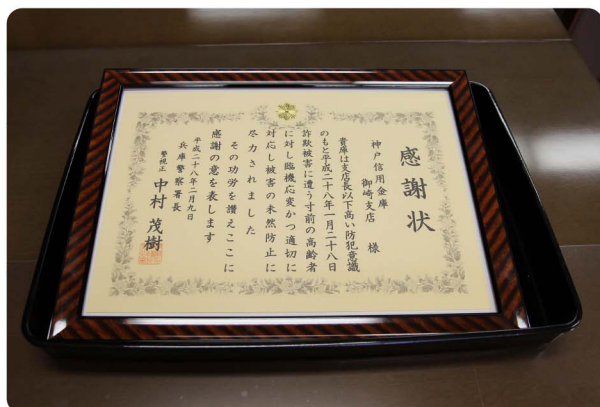 感謝状
神戸信用金庫
御崎支店　様
貴庫は支店長以下高い防犯意識
のもと平成二十八年一月二十八日
詐欺被害に遭う寸前の高齢者
に対し臨機応変かつ適切に
対応し被害の未然防止に
尽力されました
その功労を讃えここに
感謝の意を表します
平成二十八年二月九日
兵庫警察署長
警視正　中村茂樹